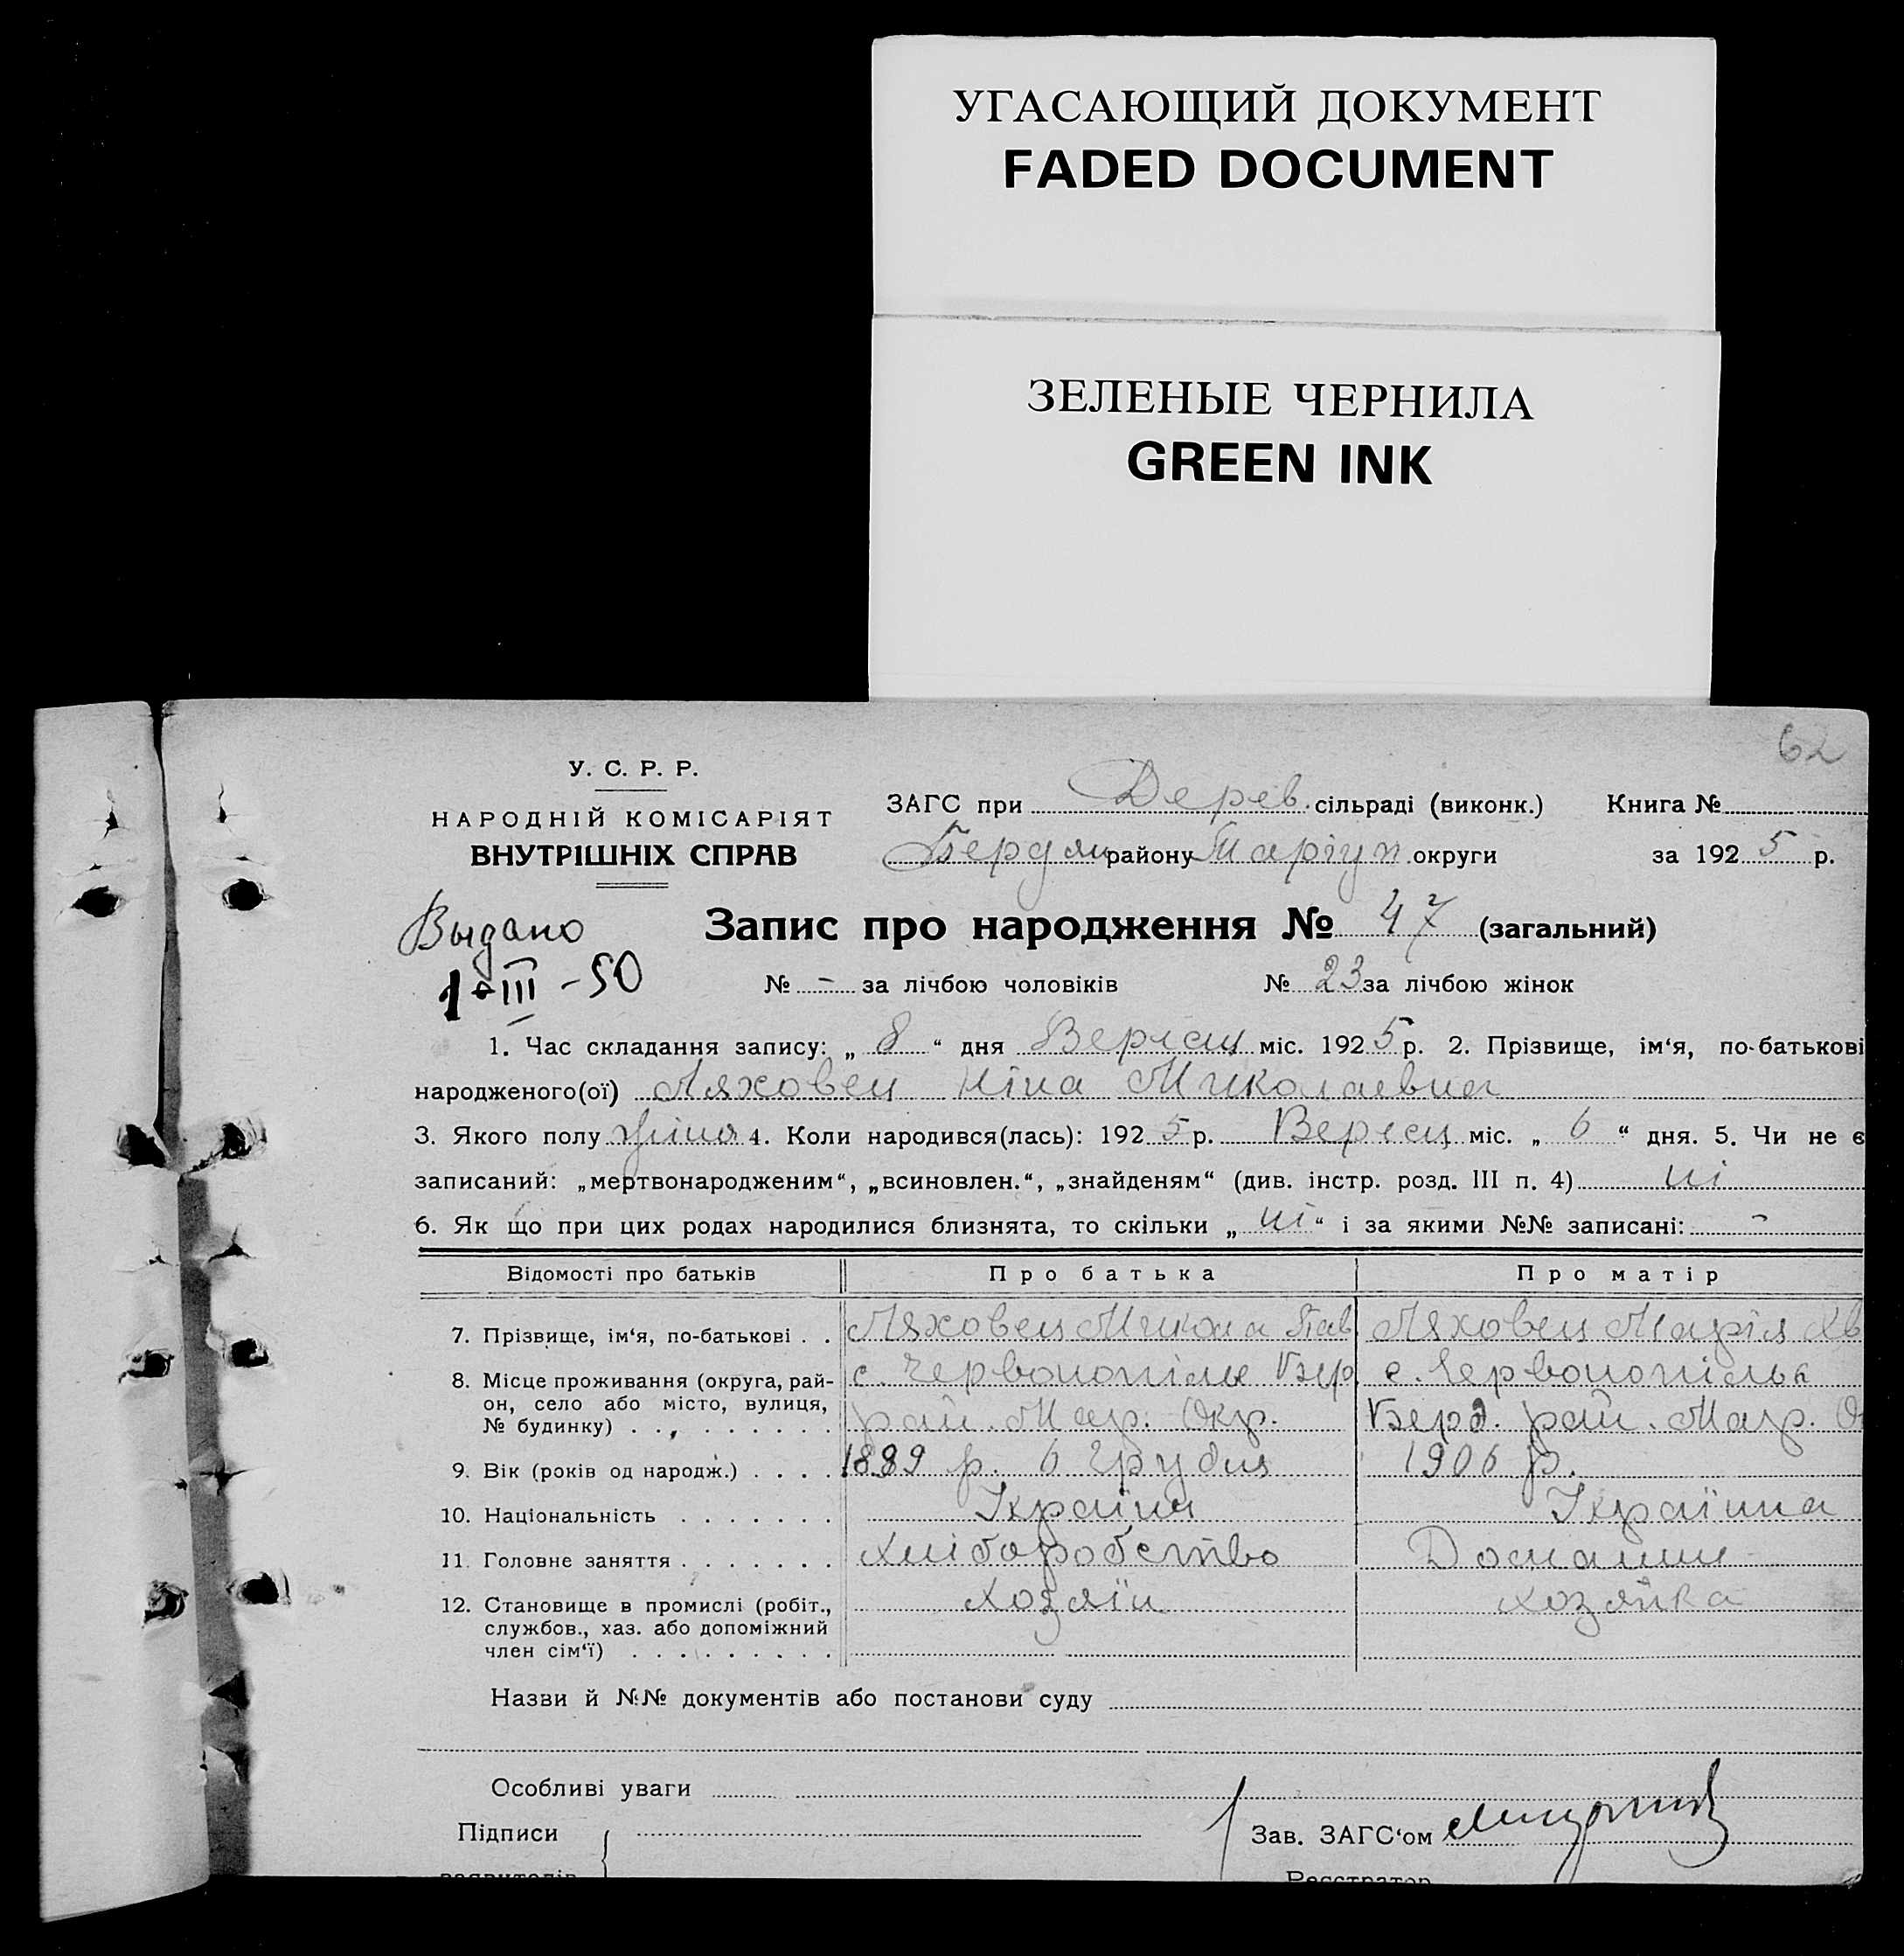 УГАСАЮЩИЙ ДОКУМЕНТ
FADED DOCUMENT
ЗЕЛЕНЫЕ ЧЕРНИЛА
GREEN INK
62
У. С. Р. Р.
НАРОДНІЙ КОМІСАРІЯТ
ВНУТРІШНІХ СПРАВ
ЗАГС при Дерев. сільраді (виконк.) Книга №
Бердян району Маріуп. округи за 1925 р.
Выдано
1-III-50
Запис про народження № 47 (загальний)
№ - за лічбою чоловіків № 23 за лічбою жінок
1. Час складання запису: „ 8 “ дня Вересн міс. 1925 р. 2. Прізвище, ім‘я, по-батькові
народженого(ої) Ляховец Ніна Миколаевна
3. Якого полу жіноч 4. Коли народився(лась): 1925 р. Вересн міс. „ 6 “ дня. 5. Чи не є
записаний: „мертвонародженим“, „всиновлен.“, „знайденям“ (див. інстр. розд. III п. 4) ні
6. Як що при цих родах народилися близнята, то скільки „ ні “ і за якими №№ записані: -
Відомості про батьків Про батька Про матір
7. Прізвище, ім‘я, по-батькові . . Ляховец Микола Пав Ляховец Марія Хв
8. Місце проживання (округа, рай- с. Червонопілле Бер с. Червонопілья
он, село або місто, вулиця, рай. Мар. Окр. Берд. рай. Мар. О
№ будинку)
9. Вік (років од народж.) . . . . 1889 р. 6 Грудня 1906 р.
10. Національність . . . . . . . Україн Українка
11. Головне заняття . . . . . . . Хліборобство Домашне
12. Становище в промислі (робіт., Хозяїн хозяйка
службов., хаз. або допоміжний
член сім‘ї) . . . . . . . . .
Назви й №№ документів або постанови суду
Особливі уваги
Підписи
Зав. ЗАГС‘ом
заявителів
Реєстратор